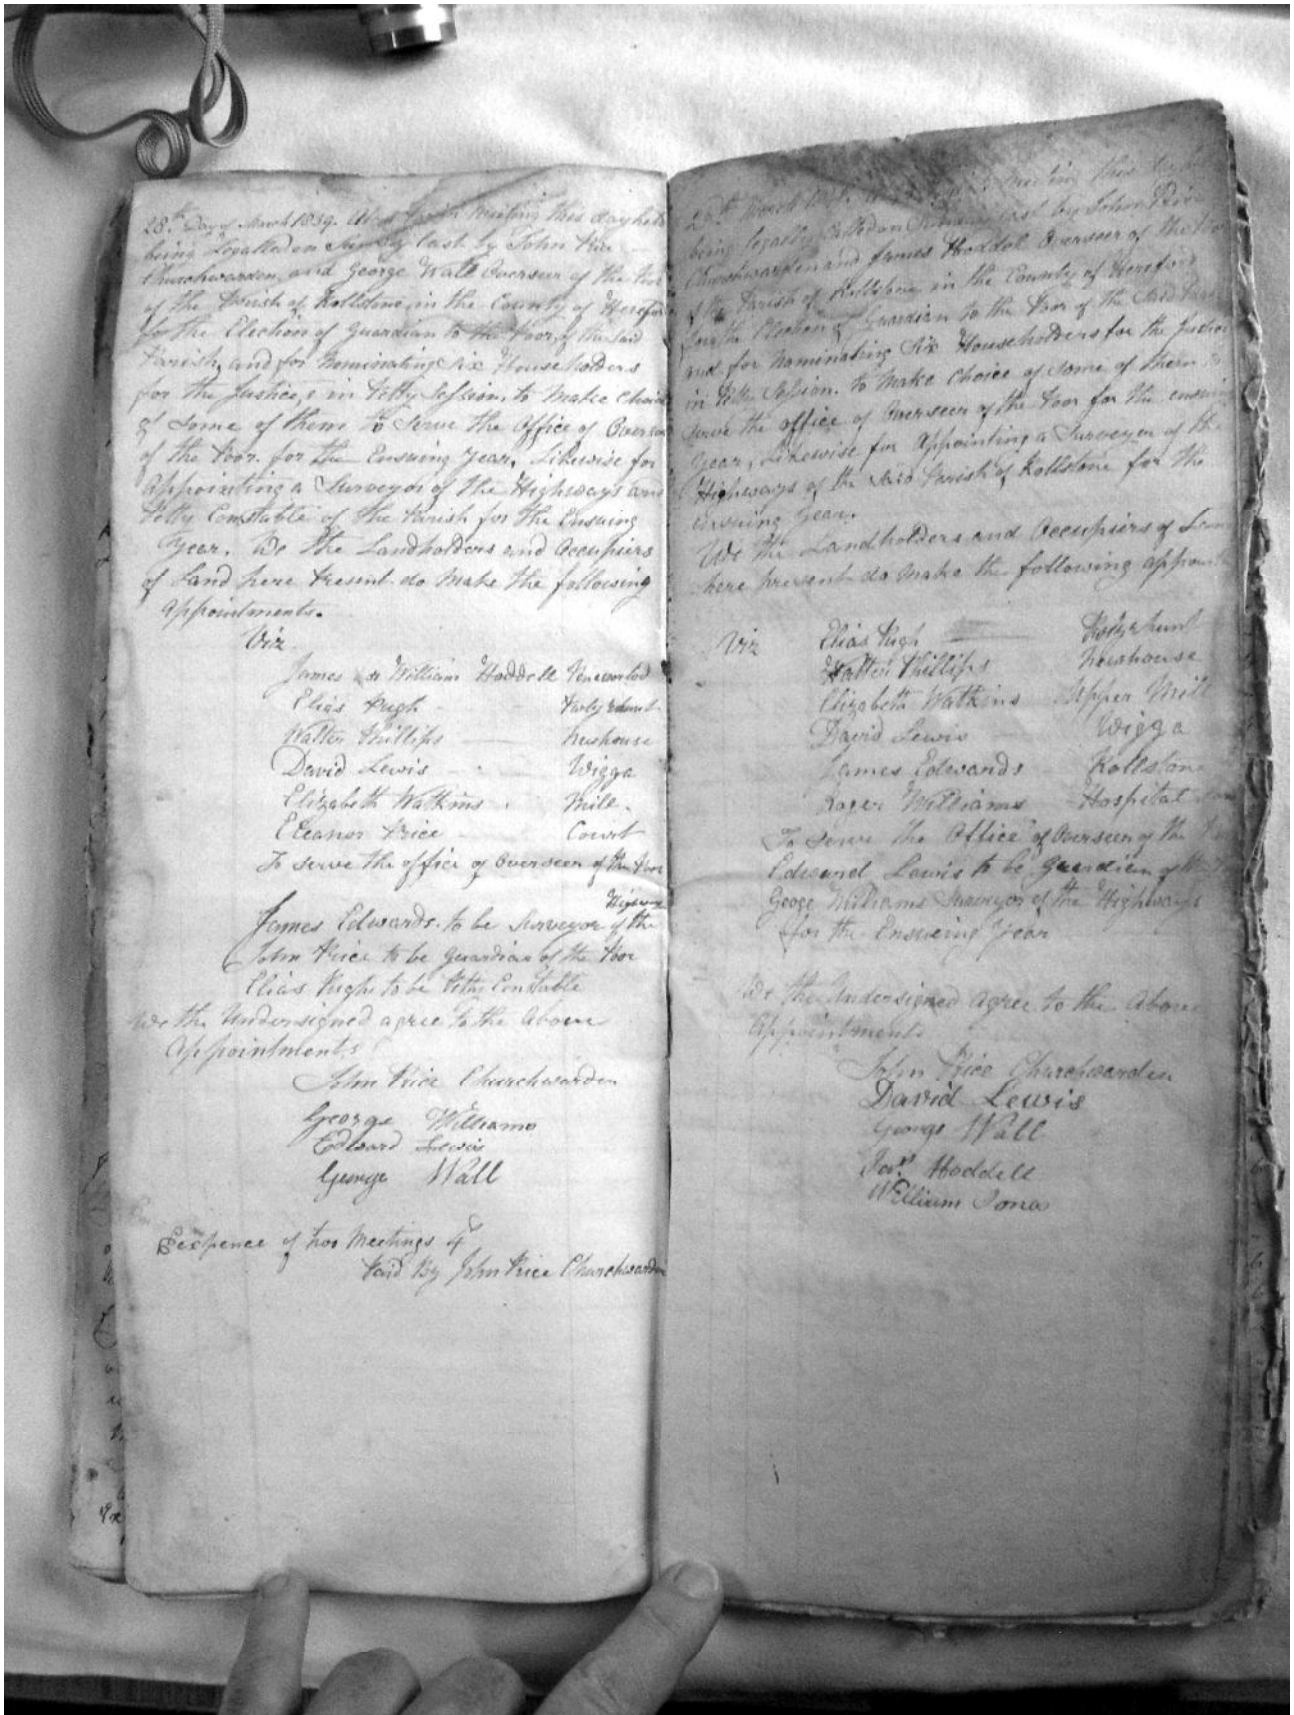 28th Day of March 1839. At a Parish Meeting this day held
being Legalled on Sunday last by John Price
Churchwarden, and George Wall Overseer of the Poor
of the Parish of Rollstone in the County of Hereford
for the Election of Guardian to the Poor, of the said
Parish, and for Nominating Six Householders
for the Justice,s in Petty Session, to Make Choice
of Some of them to Serve the Office of Overseer
of the Poor. for the Ensuing Year, Likewise for
Appointing a Surveyor of the Highways and
Petty Constable of the Parish for the Ensuing
Year. We the Landholders and Occupiers
of Land here Present do Make the following
Appointments.
Viz
James & William Hoddell
Elias Pugh
Walter Phillips Newhouse
David Lewis Wigga
Elizabeth Watkins Mill
Eleanor Price Court
To serve the office of Overseer of the Poor
Highways
James Edwards to be Surveyor of the
John Price to be Guardian of the Poor
Elias Pugh to be Petty Constable
We the Undersigned agree to the Above
Appointments
John Price Churchwarden
George Williams
Edward Lewis
George Wall
Expence of two Meetings 4s
Paid By John Price Churchwarden
March this day
being legally Called on Sunday last by John Price
Churchwarden and James Hoddell Overseer of the
of the Parish of Rollstone in the County of Hereford
for the Election of Guardian to the Poor of the Said
and for Nominating Six Householders for the Justices
in Petty Session. to Make Choice of some of them to
serve the office of Overseer of the Poor for the ensuing
Year, Likewise for Appointing a Surveyor of the
Highways of the Said Parish of Rollstone for the
ensuing Year.
We the Landholders and Occupiers of
here present do Make the following
Viz Elias Pugh
Walter Phillips Newhouse
Elizabeth Watkins Upper Mill
David Lewis Wigga
James Edwards Rollstone
Roger Williams Hospital
To Serve the Office of Overseer of the
Edward Lewis to be Guardian of the
George Williams Surveyor of the Highways
for the Ensueing Year
We the Undersigned Agree to the Above
Appointments
John Price Churchwarden
David Lewis
George Wall
Jas. Hoddell
William Jones